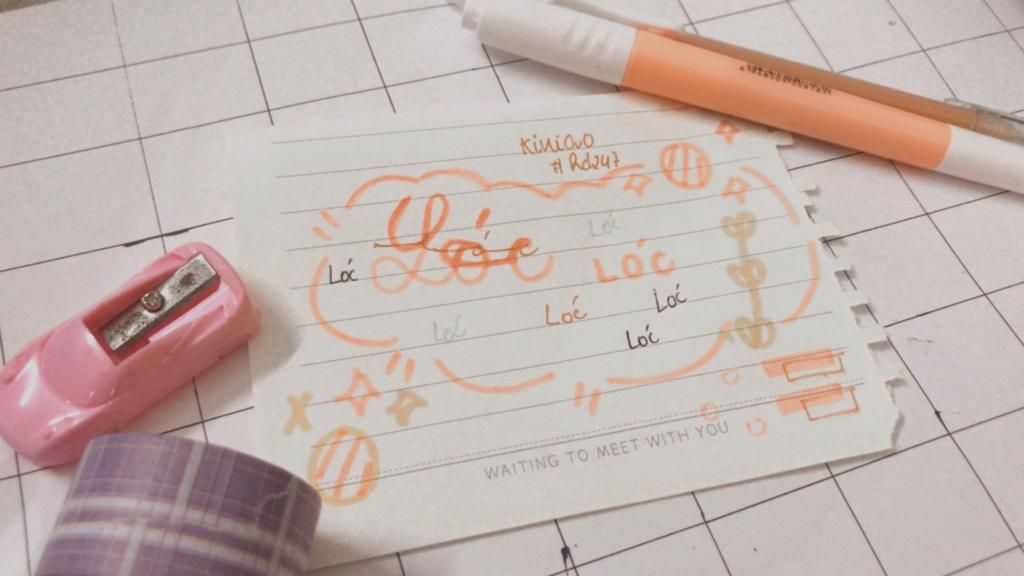 Kiniao
# Rd247
Lóc
Lóc
Lóc
Lóc
Lóc
Lóc
Lóc
Lóc
WAITING TO MEET WITH YOU